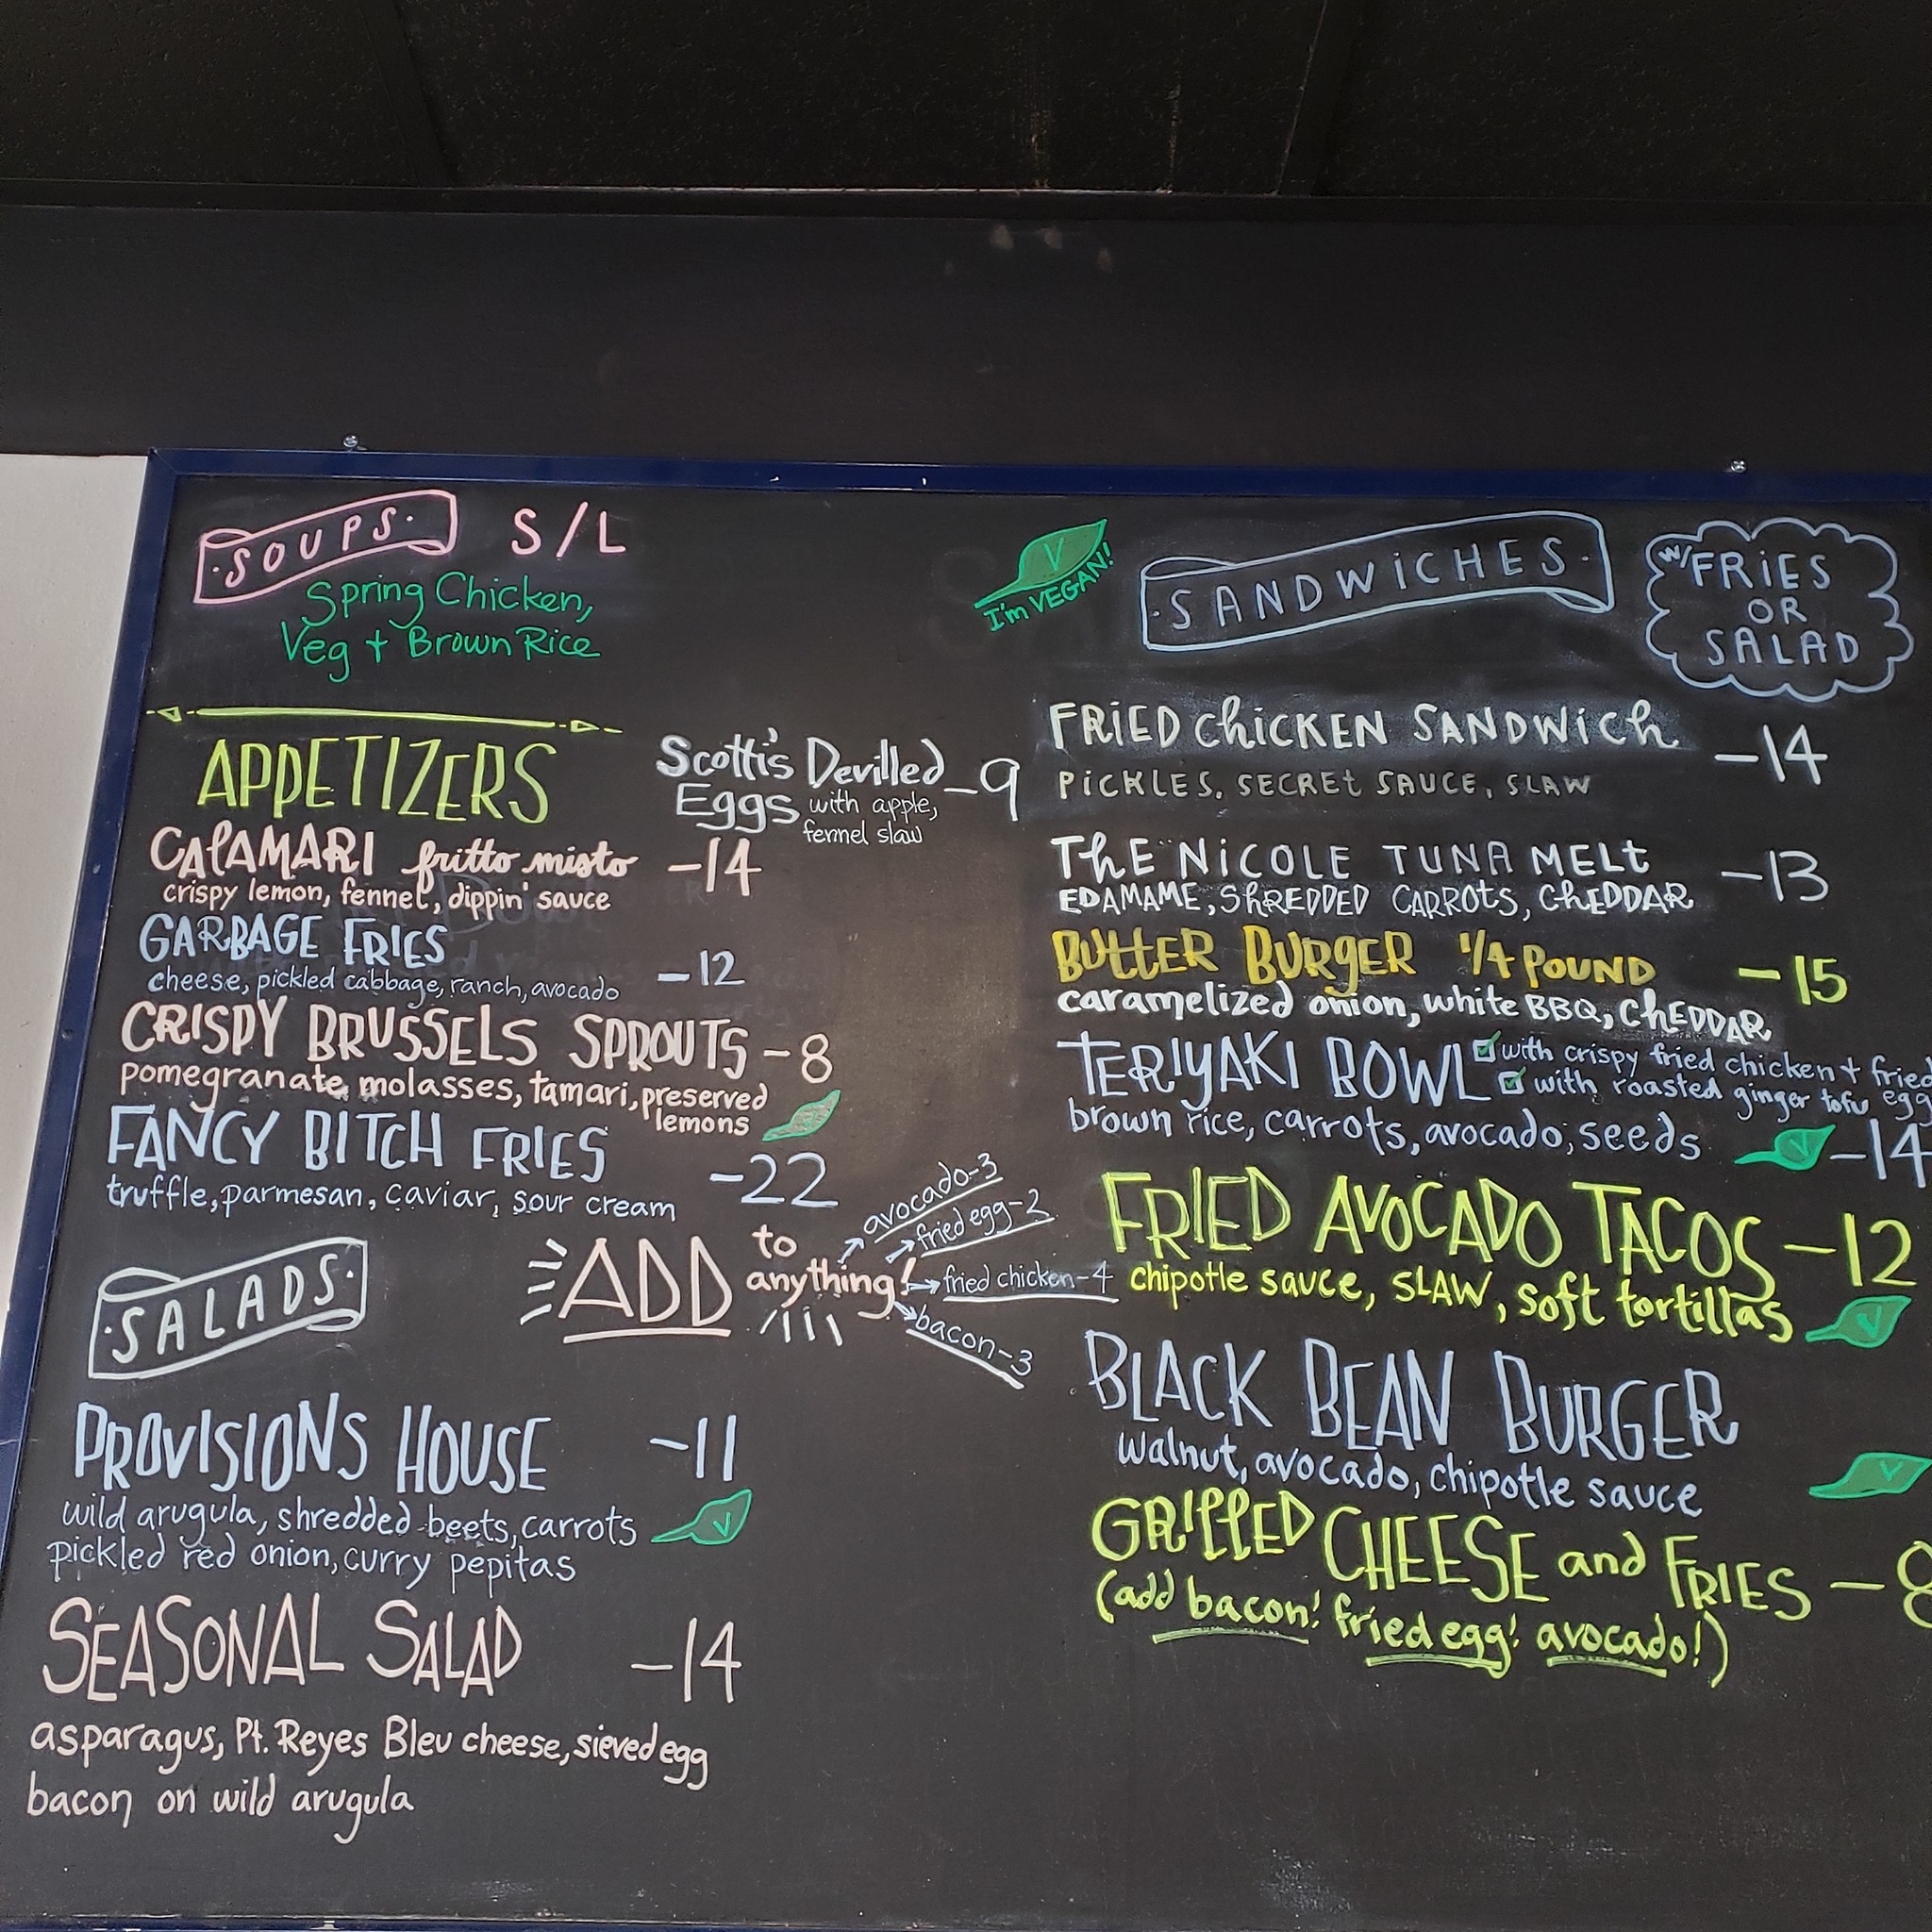 SOUPS S/L
Spring Chicken,
Veg + Brown Rice
APPETIZERS
Scotti's Devilled
Eggs with apple,
fennel slaw
-9
CALAMARI fritto misto -14
crispy lemon, fennel, dippin' sauce
GARBAGE FRIES
cheese, pickled cabbage, ranch, avocado -12
CRISPY BRUSSELS SPROUTS -8
pomegranate molasses, tamari, preserved
lemons
FANCY BITCH FRIES -22
truffle, parmesan, caviar, sour cream
ADD to
anything!
avocado-3
fried egg-2
fried chicken-4
bacon-3
SALADS
PROVISIONS HOUSE -11
wild arugula, shredded beets, carrots V
pickled red onion, curry pepitas
SEASONAL SALAD -14
asparagus, Pt. Reyes Bleu cheese, sieved egg
bacon on wild arugula
V
I'm VEGAN!
SANDWiCHES
w/ FRiES
OR
SALAD
FRiED ChiCKEN SANDWiCh -14
PiCKLES. SECREt SAUCE, SLAW
ThE NiCOLE TUNA MELt -13
EDAMAME, ShREDDED CARROtS, ChEDDAR
BUttER BURgER 1/4 POUND -15
caramelized onion, white BBQ, ChEDDAR
TERIYAKI BOWL with crispy fried chicken + fried
with roasted ginger tofu egg
brown rice, carrots, avocado, seeds V -14
FRIED AVOCADO TACOS -12
chipotle sauce, SLAW, soft tortillas V
BLACK BEAN BURGER
walnut, avocado, chipotle sauce V
GRILLED CHEESE and FRIES -8
(add bacon! fried egg! avocado!)